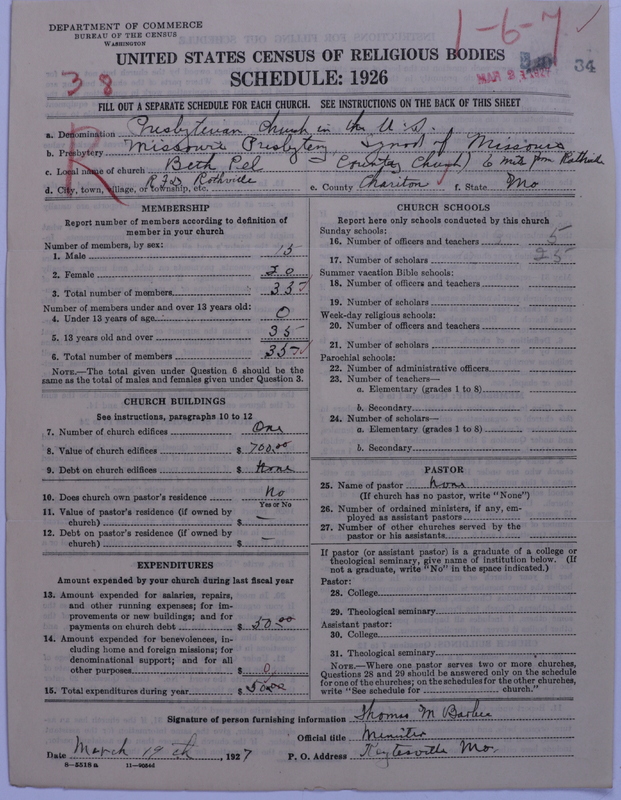 DEPARTMENT OF COMMERCE
BUREAU OF THE CENSUS
WASHINGTON
1-6-7
UNITED STATES CENSUS OF RELIGIOUS BODIES
SCHEDULE: 1926
38
34
FILL OUT A SEPARATE SCHEDULE FOR EACH CHURCH. SEE INSTRUCTIONS ON THE BACK OF THIS SHEET
R
a. Denomination Presbyterian Church in the U.S.
b. Presbytery Missouri Presbytery Synod of Missouri
c. Local name of church Beth Pel (Country Church) 6 mile from Rothville
d. City, town, village, or township, etc. RFD Rothville e. County Chariton f. State Mo
MEMBERSHIP
Report number of members according to definition of
member in your church
Number of members, by sex:
1. Male 15
2. Female 20
3. Total number of members 35
Number of members under and over 13 years old:
4. Under 13 years of age 0
5. 13 years old and over 35
6. Total number of members 35
NOTE.—The total given under Question 6 should be the
same as the total of males and females given under Question 3.
CHURCH BUILDINGS
See instructions, paragraphs 10 to 12
7. Number of church edifices One
8. Value of church edifices $ 700.00
9. Debt on church edifices $ None
10. Does church own pastor's residence No
Yes or No
11. Value of pastor's residence (if owned by
church) $ —
12. Debt on pastor's residence (if owned by
church) $ —
EXPENDITURES
Amount expended by your church during last fiscal year
13. Amount expended for salaries, repairs,
and other running expenses; for im-
provements or new buildings; and for
payments on church debt $ 50.00
14. Amount expended for benevolences, in-
cluding home and foreign missions; for
denominational support; and for all
other purposes $ 0
15. Total expenditures during year $ 50.00
CHURCH SCHOOLS
Report here only schools conducted by this church
Sunday schools:
16. Number of officers and teachers 5
17. Number of scholars 25
Summer vacation Bible schools:
18. Number of officers and teachers
19. Number of scholars
Week-day religious schools:
20. Number of officers and teachers
21. Number of scholars
Parochial schools:
22. Number of administrative officers
23. Number of teachers—
a. Elementary (grades 1 to 8)
b. Secondary
24. Number of scholars—
a. Elementary (grades 1 to 8)
b. Secondary
PASTOR
25. Name of pastor None
(If church has no pastor, write "None")
26. Number of ordained ministers, if any, em-
ployed as assistant pastors
27. Number of other churches served by the
pastor or his assistants
If pastor (or assistant pastor) is a graduate of a college or
theological seminary, give name of institution below. (If
not a graduate, write "No" in the space indicated.)
Pastor:
28. College
29. Theological seminary
Assistant pastor:
30. College
31. Theological seminary
NOTE.—Where one pastor serves two or more churches,
Questions 28 and 29 should be answered only on the schedule
for one of the churches; on the schedules for the other churches,
write "See schedule for church."
Signature of person furnishing information Thomas M Barbee
Official title Minister
Date March 19th, 1927 P. O. Address Keytesville Mo.
8-5518a 11-90546